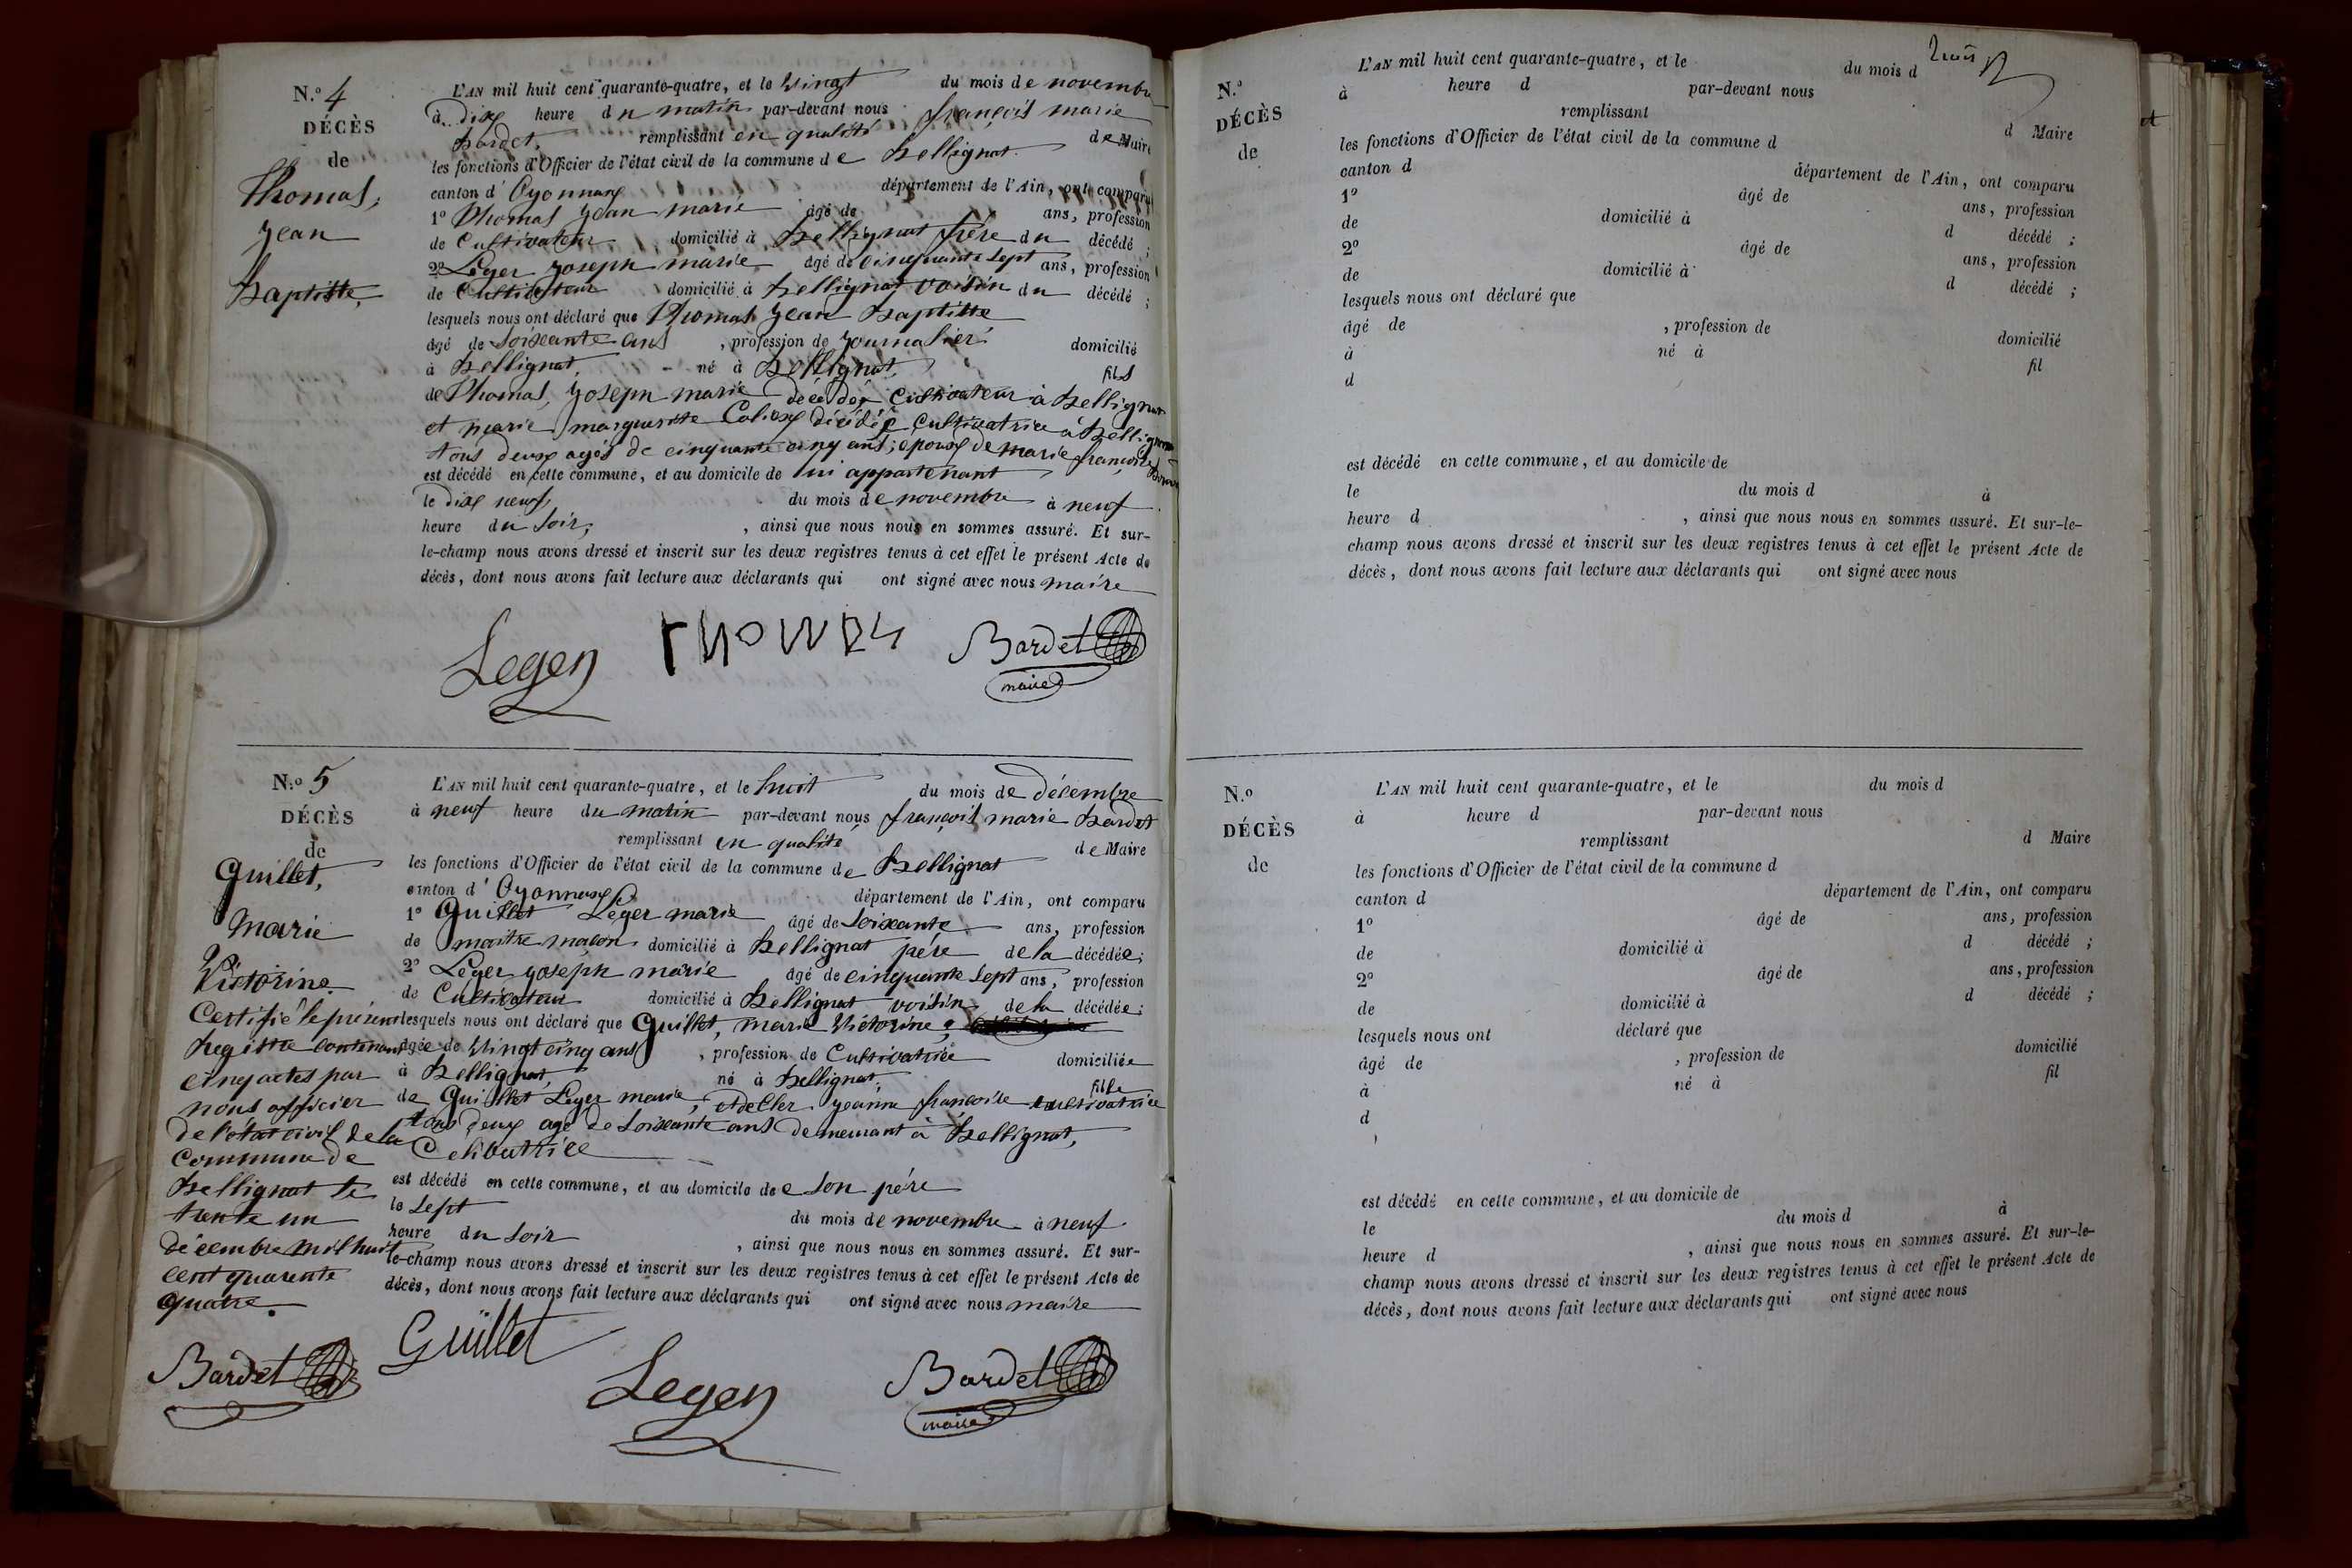 N.º 4
DÉCÈS
de
Thomas,
Jean
Baptiste,
L'AN mil huit cent quarante-quatre, et le vingt du mois de novembre
à dix heure du matin par-devant nous françois marie
Bardet, remplissant en qualité de Maire
les fonctions d'Officier de l'état civil de la commune de Bellignat
canton d'Oyonnax département de l'Ain, ont comparu
1º Thomas Jean marie âgé de ans, profession
de Cultivateur domicilié à Bellignat frére du décédé ;
2º Léger Joseph marie âgé de cinquante sept ans, profession
de Cultivateur domicilié à Bellignat voisin du décédé ;
lesquels nous ont déclaré que Thomas Jean Baptiste
âgé de soixante ans , profession de Journalier domicilié
à Bellignat, né à Bellignat, fils
de Thomas, Joseph marie décédé Cultivateur à Bellignat
et marie marguerite décédée Cultivatrice à Bellignat
tous deux agés de cinquante cinq ans; epoux de marie françoise
est décédé en cette commune, et au domicile de lui appartenant
le dix neuf du mois de novembre à neuf
heure du soir, , ainsi que nous nous en sommes assuré. Et sur-
le-champ nous avons dressé et inscrit sur les deux registres tenus à cet effet le présent Acte de
décès, dont nous avons fait lecture aux déclarants qui ont signé avec nous maire
Leger THOMAS Bardet
maire
N.º 5
DÉCÈS
de
Guillet,
Marie
Victorine.
L'AN mil huit cent quarante-quatre, et le huit du mois de décembre
à neuf heure du matin par-devant nous françois marie Bardet
remplissant en qualité de Maire
les fonctions d'Officier de l'état civil de la commune de Bellignat
canton d'Oyonnax département de l'Ain, ont comparu
1º Guillet Léger marie âgé de soixante ans, profession
de maitre maçon domicilié à Bellignat pére de la décédée;
2º Léger Joseph marie âgé de cinquante sept ans, profession
de Cultivateur domicilié à Bellignat voisin de la décédée;
lesquels nous ont déclaré que Guillet, marie Victorine,
âgée de vingt cinq ans , profession de Cultivatrice domiciliée
à Bellignat, né à Bellignat, fille
de Guillet Leger marie, et de Cler Jeanne françoise cultivatrice
tous deux agé de soixante ans demeurant à Bellignat,
Celibattrice
est décédé en cette commune, et au domicile de son pére
le sept du mois de novembre à neuf
heure du soir , ainsi que nous nous en sommes assuré. Et sur-
le-champ nous avons dressé et inscrit sur les deux registres tenus à cet effet le présent Acte de
décès, dont nous avons fait lecture aux déclarants qui ont signé avec nous maire
Certifie le présent
Registre contenant
cinq actes par
nous officier
de l'état civil de la
Commune de
Bellignat le
trente un
décembre mil huit
cent quarente
quatre.
Bardet Guillet Leger Bardet
maire
N.º
DÉCÈS
de
L'AN mil huit cent quarante-quatre, et le du mois d
à heure d par-devant nous
remplissant d Maire
les fonctions d'Officier de l'état civil de la commune d
canton d département de l'Ain, ont comparu
1º âgé de ans, profession
de domicilié à d décédé ;
2º âgé de ans, profession
de domicilié à d décédé ;
lesquels nous ont déclaré que
âgé de , profession de domicilié
à né à fil
d
est décédé en cette commune, et au domicile de
le du mois d à
heure d , ainsi que nous nous en sommes assuré. Et sur-le-
champ nous avons dressé et inscrit sur les deux registres tenus à cet effet le présent Acte de
décès, dont nous avons fait lecture aux déclarants qui ont signé avec nous
N.º
DÉCÈS
de
L'AN mil huit cent quarante-quatre, et le du mois d
à heure d par-devant nous
remplissant d Maire
les fonctions d'Officier de l'état civil de la commune d
canton d département de l'Ain, ont comparu
1º âgé de ans, profession
de domicilié à d décédé ;
2º âgé de ans, profession
de domicilié à d décédé ;
lesquels nous ont déclaré que
âgé de , profession de domicilié
à né à fil
d
est décédé en cette commune, et au domicile de
le du mois d à
heure d , ainsi que nous nous en sommes assuré. Et sur-le-
champ nous avons dressé et inscrit sur les deux registres tenus à cet effet le présent Acte de
décès, dont nous avons fait lecture aux déclarants qui ont signé avec nous